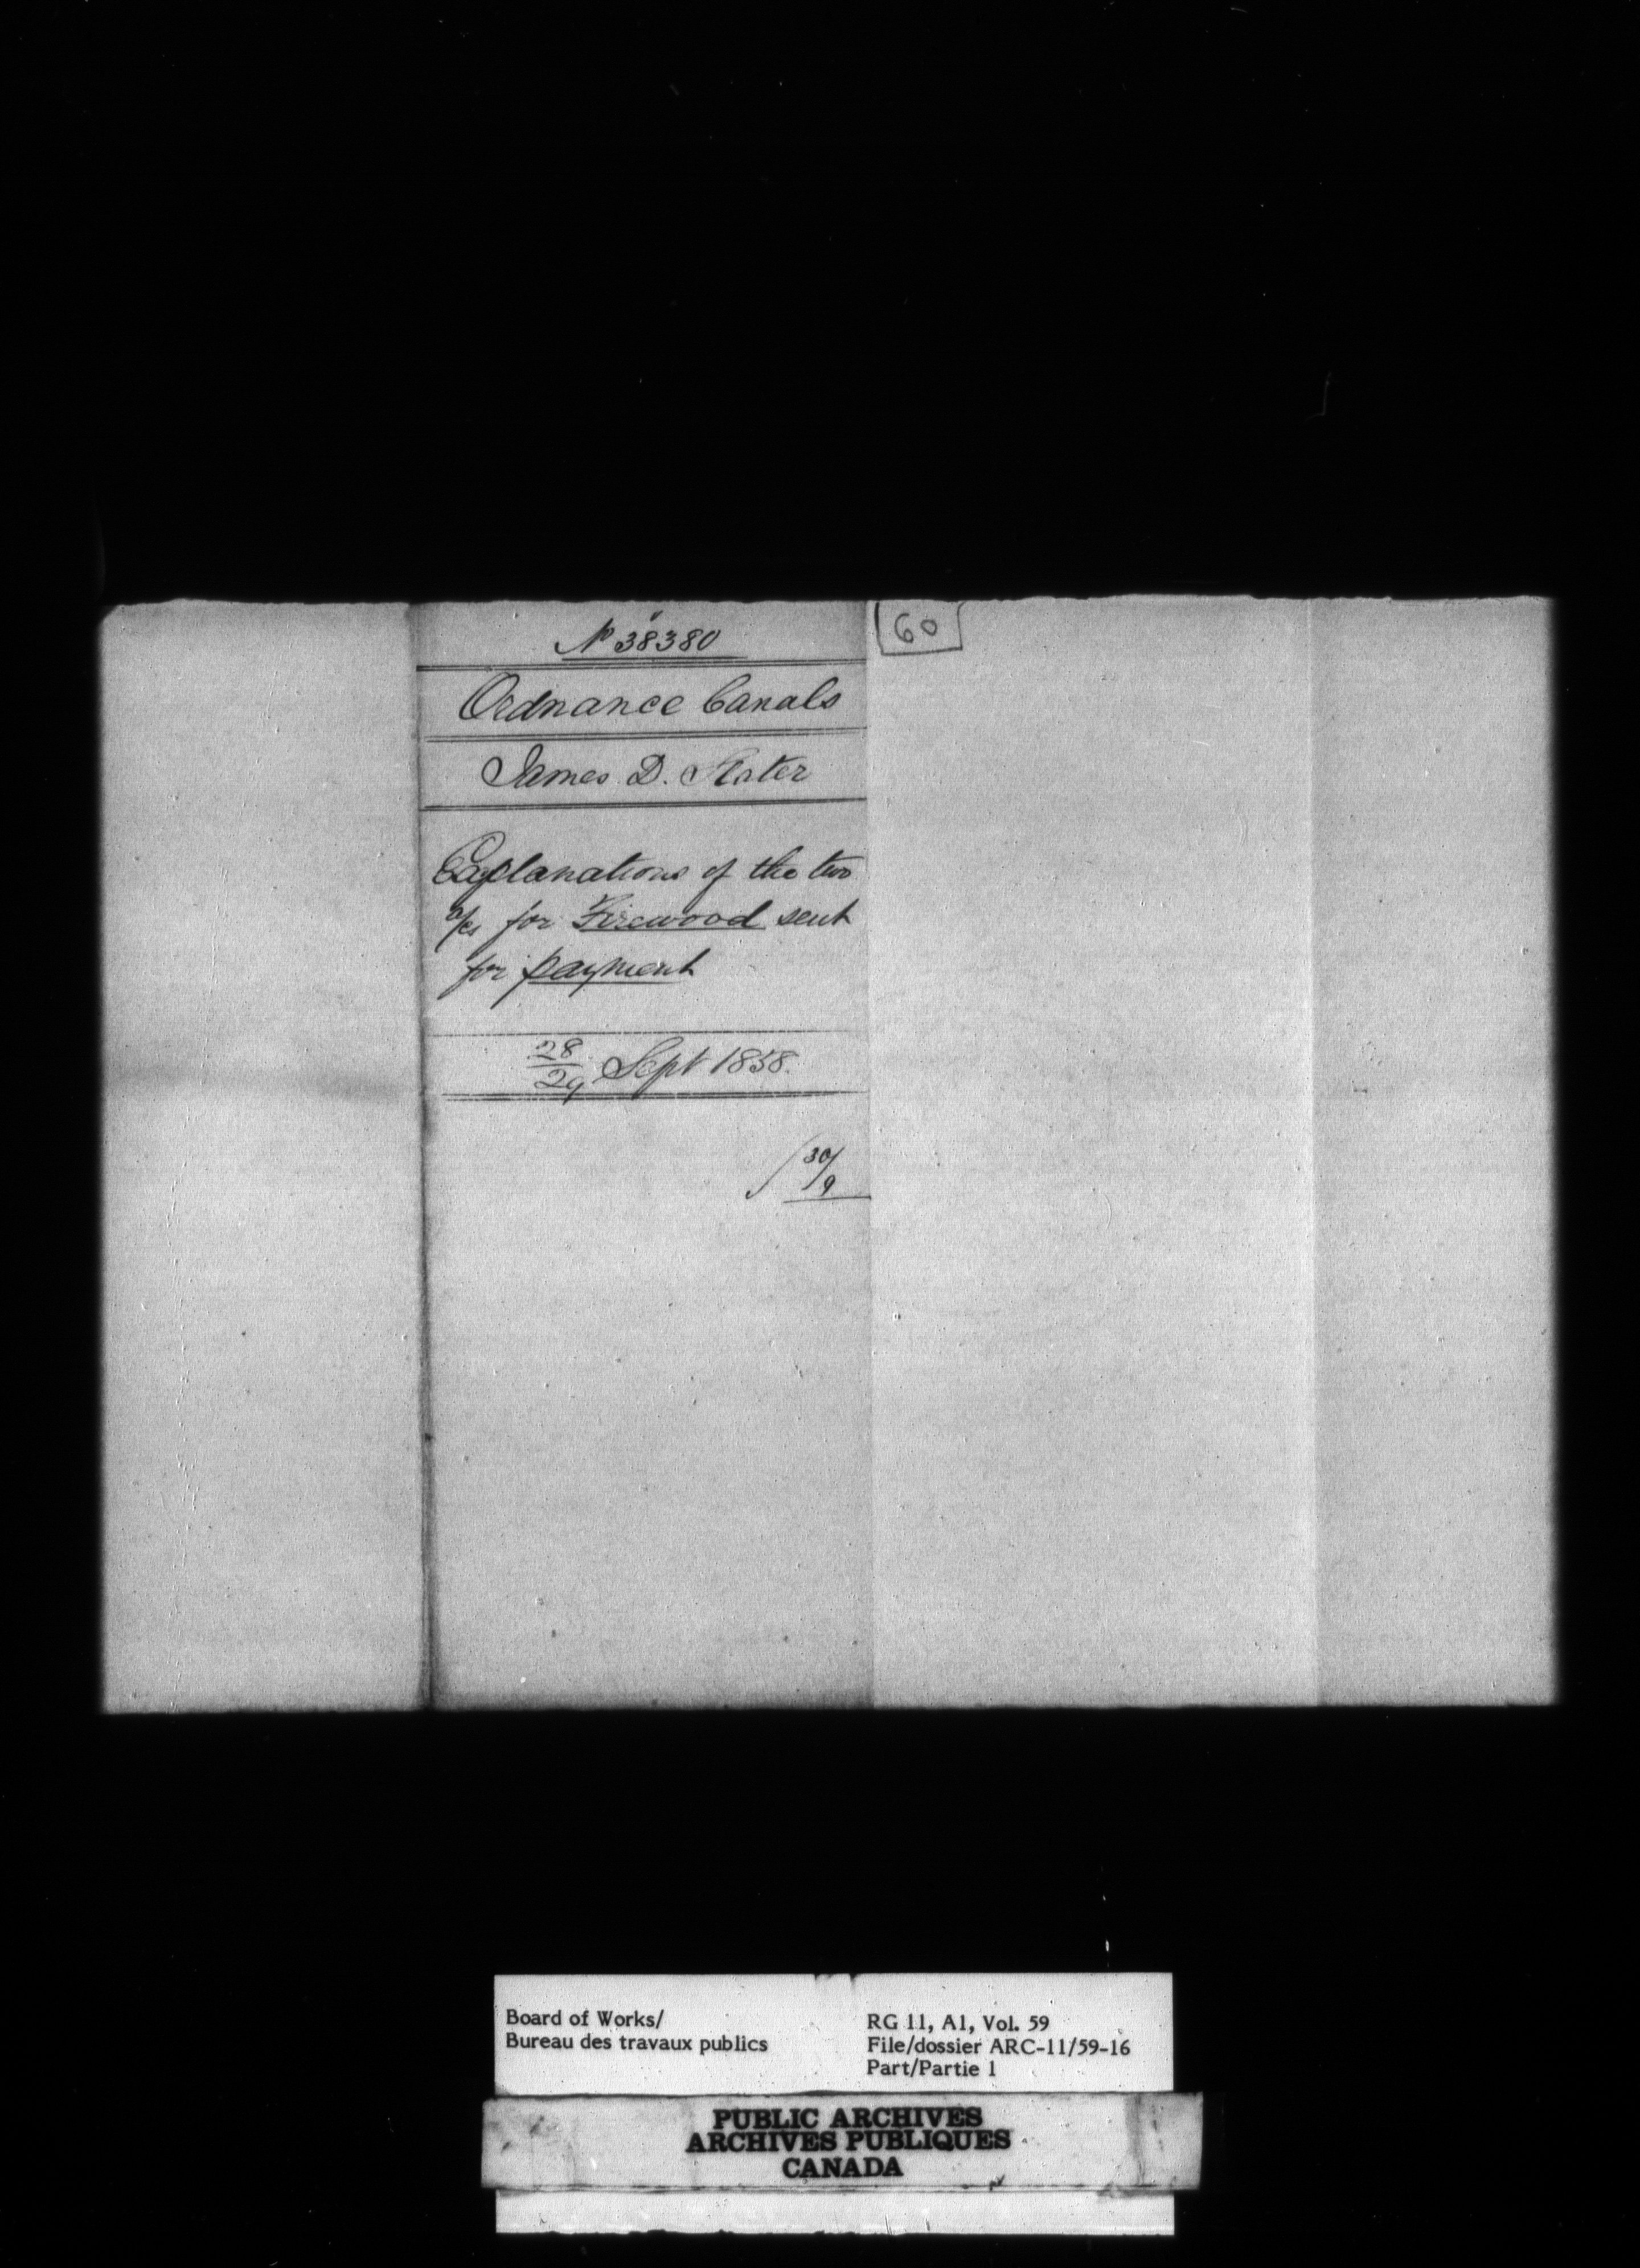 No 38380
60
Ordnance Canals
James D. Slater
Explanations of the two
a/cs for Firewood sent
for payment
28/29 Sept 1858.
30/9
Board of Works/
Bureau des travaux publics
RG 11, A1, Vol. 59
File/dossier ARC-11/59-16
Part/Partie 1
PUBLIC ARCHIVES
ARCHIVES PUBLIQUES
CANADA